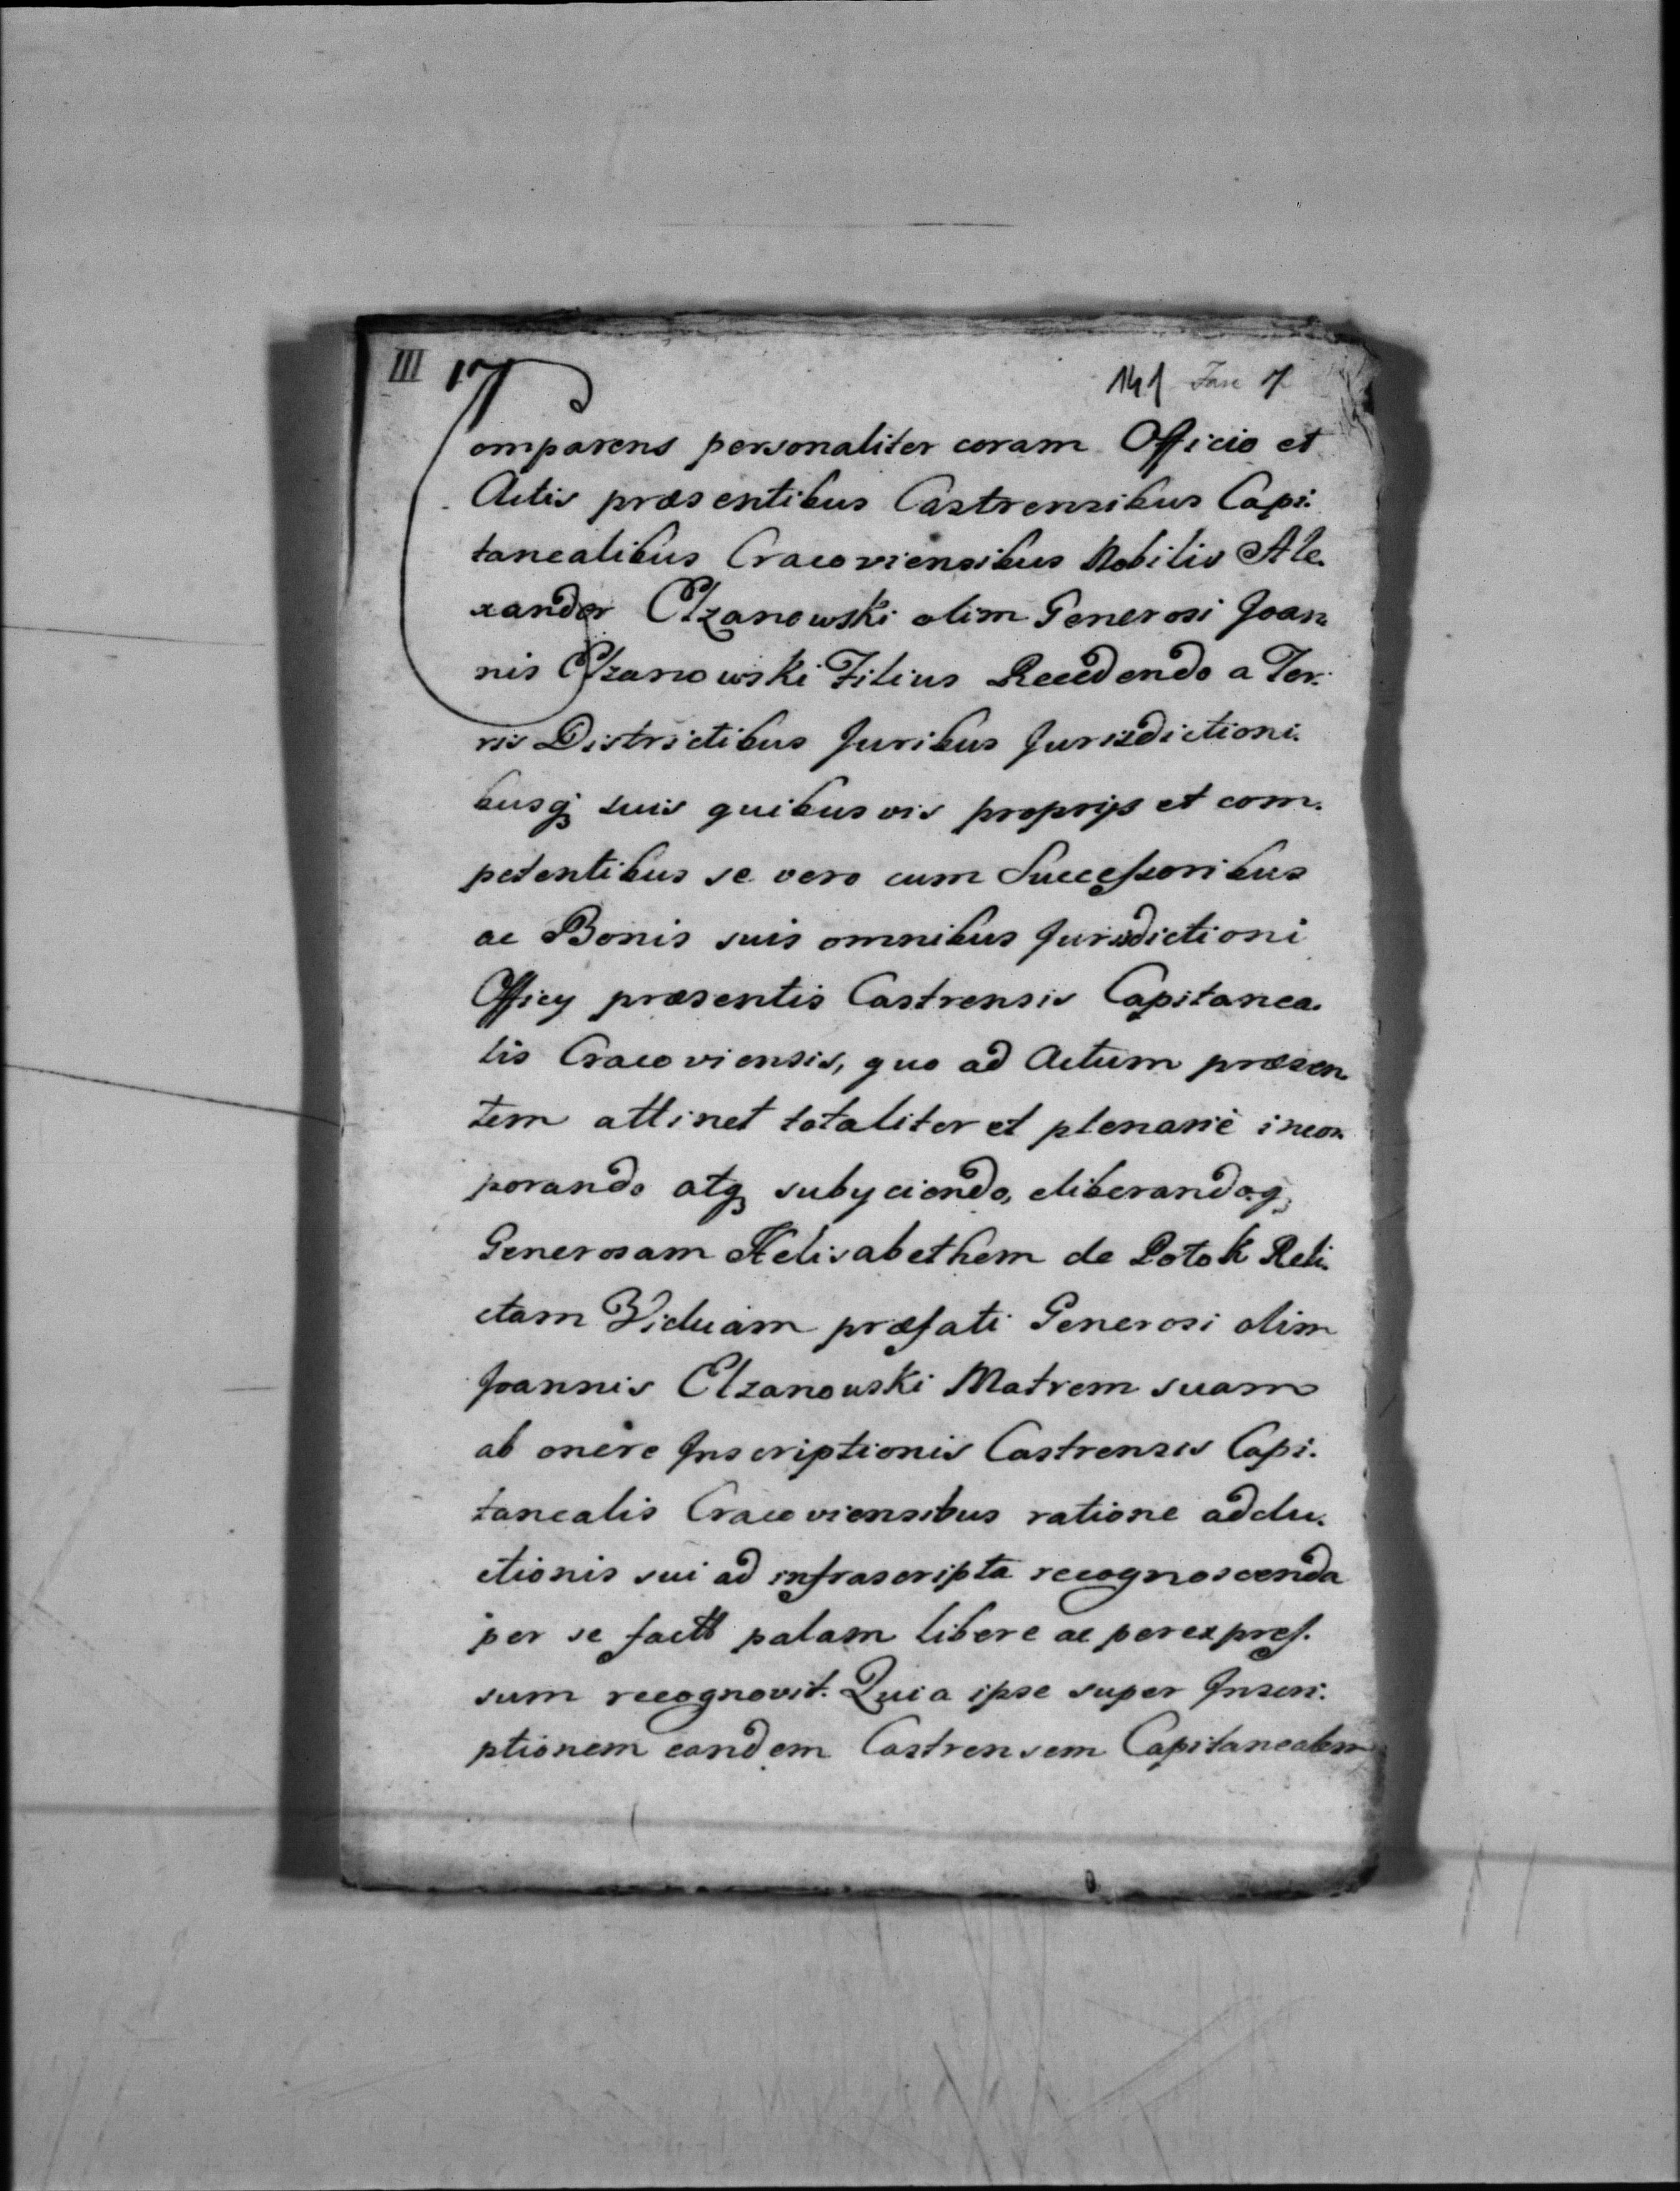 III 17
141 Fasc 7
Comparens personaliter coram Officio et
Actis præsentibus Castrensibus Capi-
tanealibus Cracoviensibus Nobilis Ale-
xander Elzanowski olim Generosi Joan-
nis Elzanowski Filius Recedendo a Ter-
ris Districtibus Juribus Jurisdictioni-
busq suis quibusvis proprijs et com-
petentibus se vero cum Successoribus
ac Bonis suis omnibus Jurisdictioni
Officy præsentis Castrensis Capitanea-
lis Cracoviensis, quo ad Actum præsen-
tem attinet totaliter et plenariè incor-
porando atq subyciendo, eliberandoq
Generosam Helisabethem de Potok Reli-
ctam Viduam præfati Generosi olim
Joannis Elzanowski Matrem suam
ab onere Inscriptionis Castrensis Capi-
tanealis Cracoviensibus ratione addu-
ctionis sui ad infrascripta recognoscenda
per se palam libere ac per expres-
sum recognovit. Quia ipse super Inscri-
ptionem eandem Castrensem Capitanealem